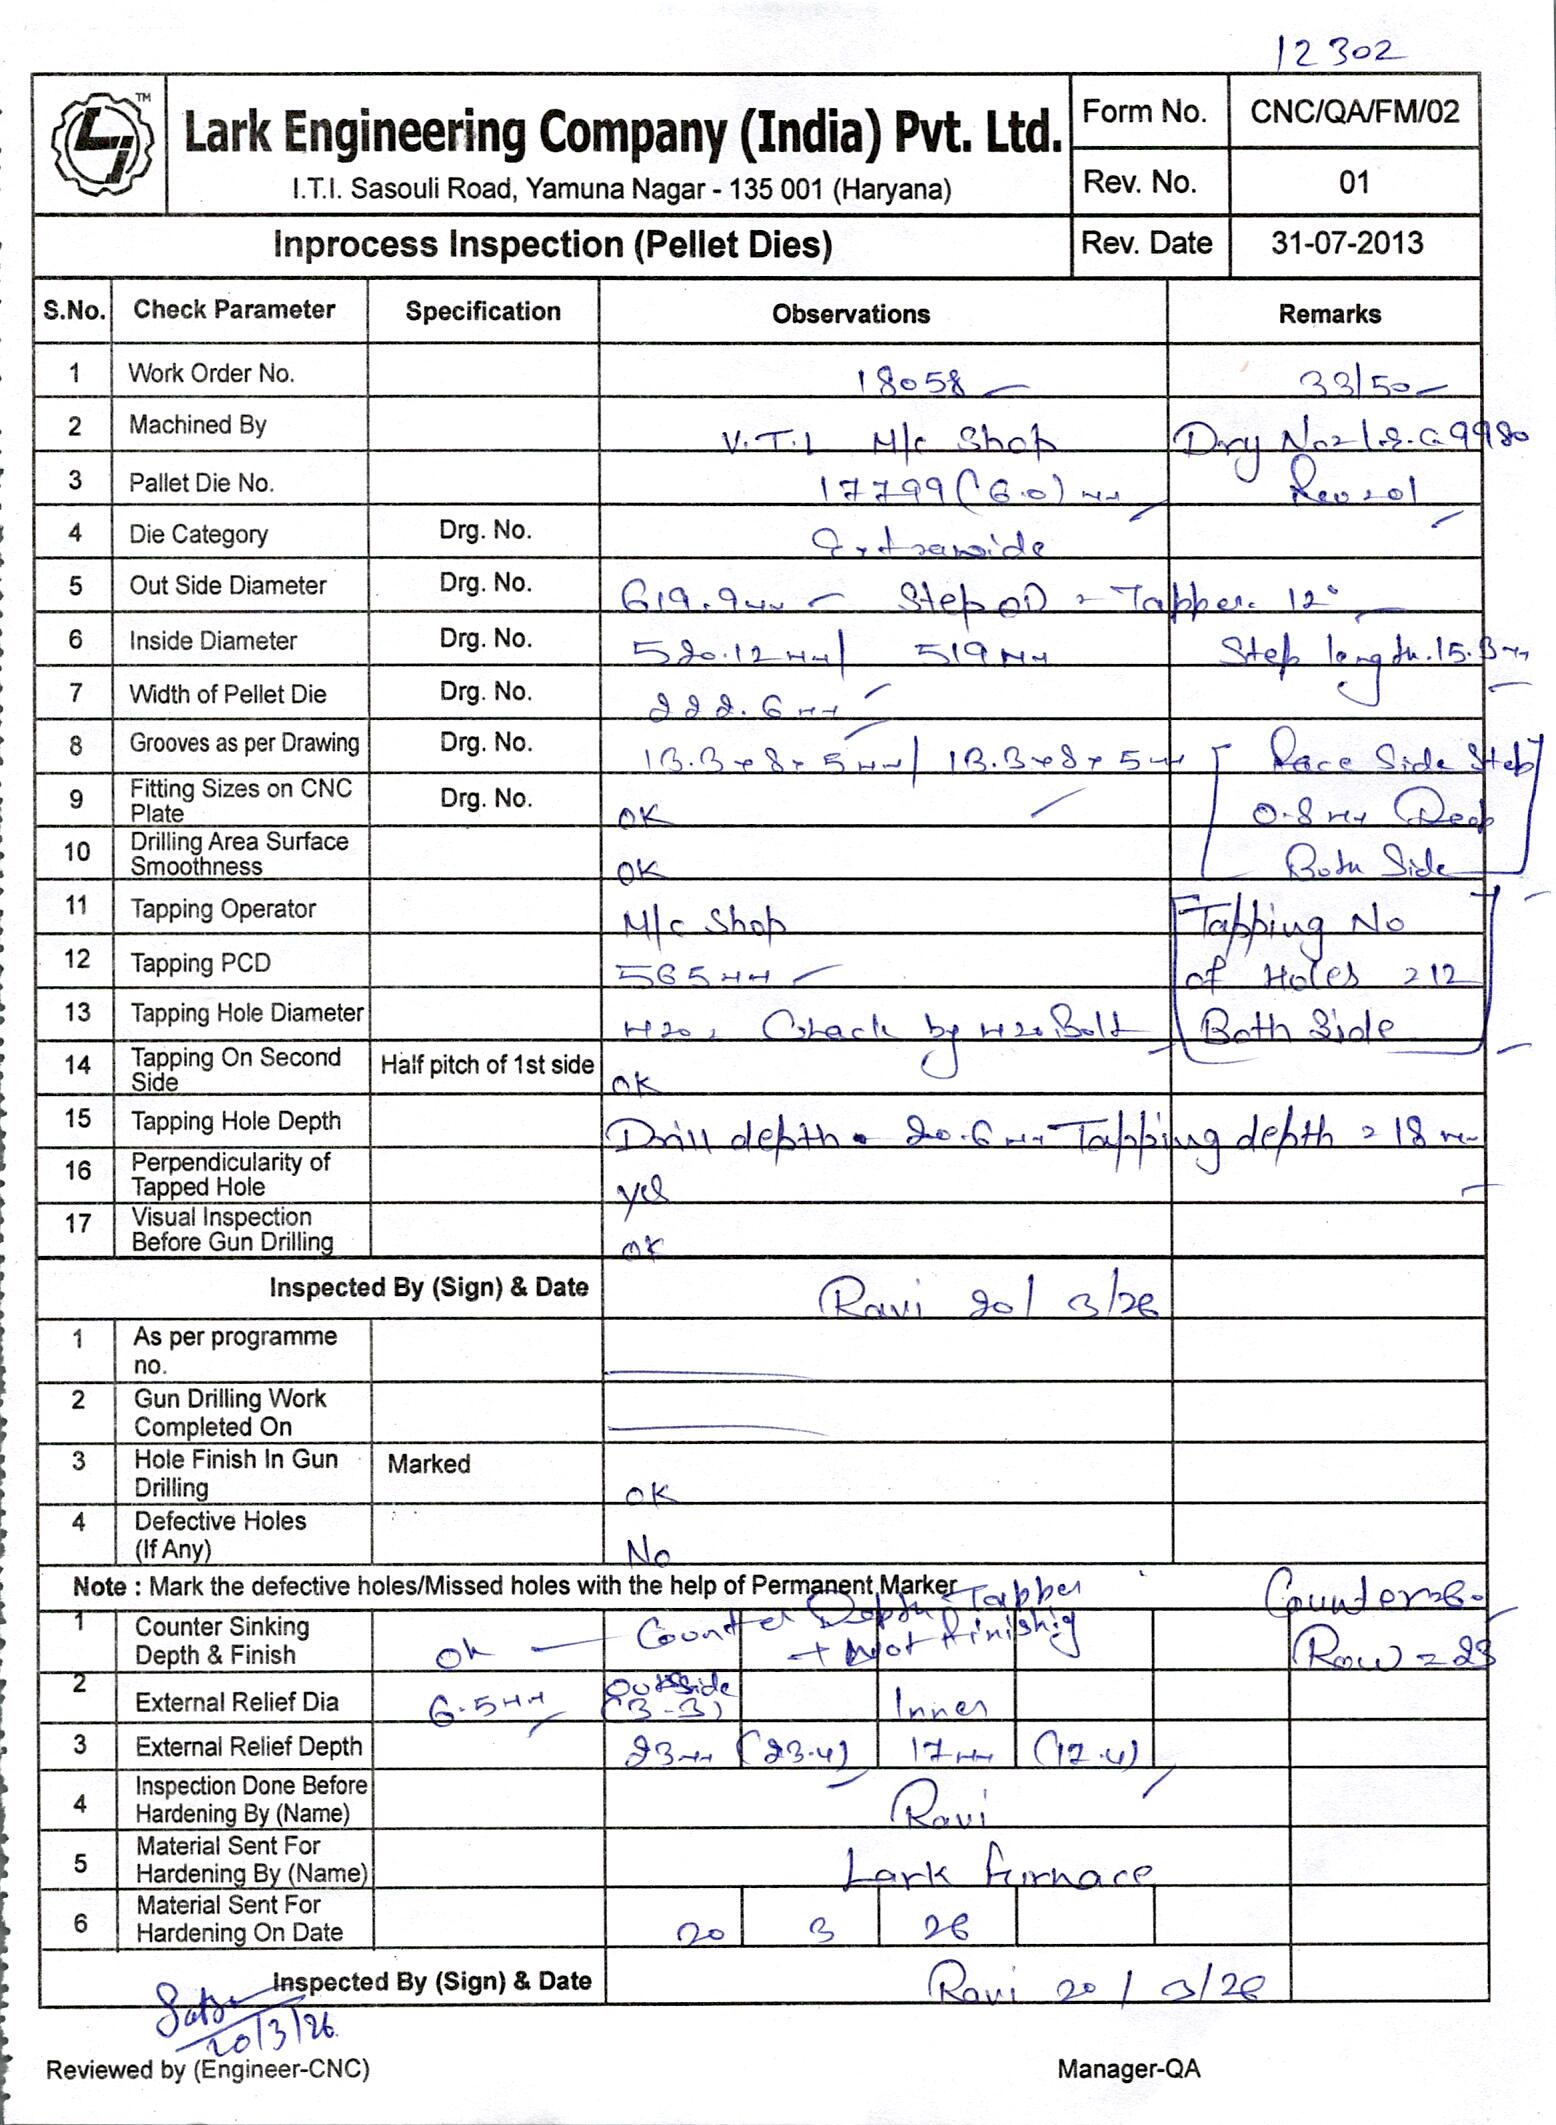 12302
TM
Lark Engineering Company (India) Pvt. Ltd.
I.T.I. Sasouli Road, Yamuna Nagar - 135 001 (Haryana)
Form No. CNC/QA/FM/02
Rev. No. 01
Inprocess Inspection (Pellet Dies) Rev. Date 31-07-2013
S.No. Check Parameter Specification Observations Remarks
1 Work Order No. 18058 33/50
2 Machined By V.T.L M/c Shop Drg No = L.E.C. 9980
3 Pallet Die No. 17799 (6.0) mm Rev = 01
4 Die Category Drg. No. Extrawide
5 Out Side Diameter Drg. No. 619.9 mm Step OD = Tapper. 12°
6 Inside Diameter Drg. No. 520.12 mm / 519 mm Step length. 15.3 mm
7 Width of Pellet Die Drg. No. 222.6 mm
8 Grooves as per Drawing Drg. No. 13.3 x 8 x 5 mm / 13.3 x 8 x 5 mm Race Side Step
9 Fitting Sizes on CNC Plate Drg. No. OK 0.8 mm Deep
10 Drilling Area Surface Smoothness OK Both Side
11 Tapping Operator M/c Shop Tapping No
12 Tapping PCD 565 mm of Holes = 12
13 Tapping Hole Diameter M20, Check by M20 Bolt Both Side
14 Tapping On Second Side Half pitch of 1st side OK
15 Tapping Hole Depth Drill depth = 20.6 mm Tapping depth = 18 mm
16 Perpendicularity of Tapped Hole yes
17 Visual Inspection Before Gun Drilling OK
Inspected By (Sign) & Date Ravi 20/3/26
1 As per programme no.
2 Gun Drilling Work Completed On
3 Hole Finish In Gun Drilling Marked OK
4 Defective Holes (If Any) No
Note : Mark the defective holes/Missed holes with the help of Permanent Marker
1 Counter Sinking Depth & Finish Ok Counter Depth Tapper + Not finishig Counter = 60° Row = 23
2 External Relief Dia 6.5 mm Outside (3-3) Inner
3 External Relief Depth 23 mm (23.4) 17 mm (17.4)
4 Inspection Done Before Hardening By (Name) Ravi
5 Material Sent For Hardening By (Name) Lark furnace
6 Material Sent For Hardening On Date 20 3 26
Inspected By (Sign) & Date Ravi 20/3/26
20/3/26
Reviewed by (Engineer-CNC) Manager-QA